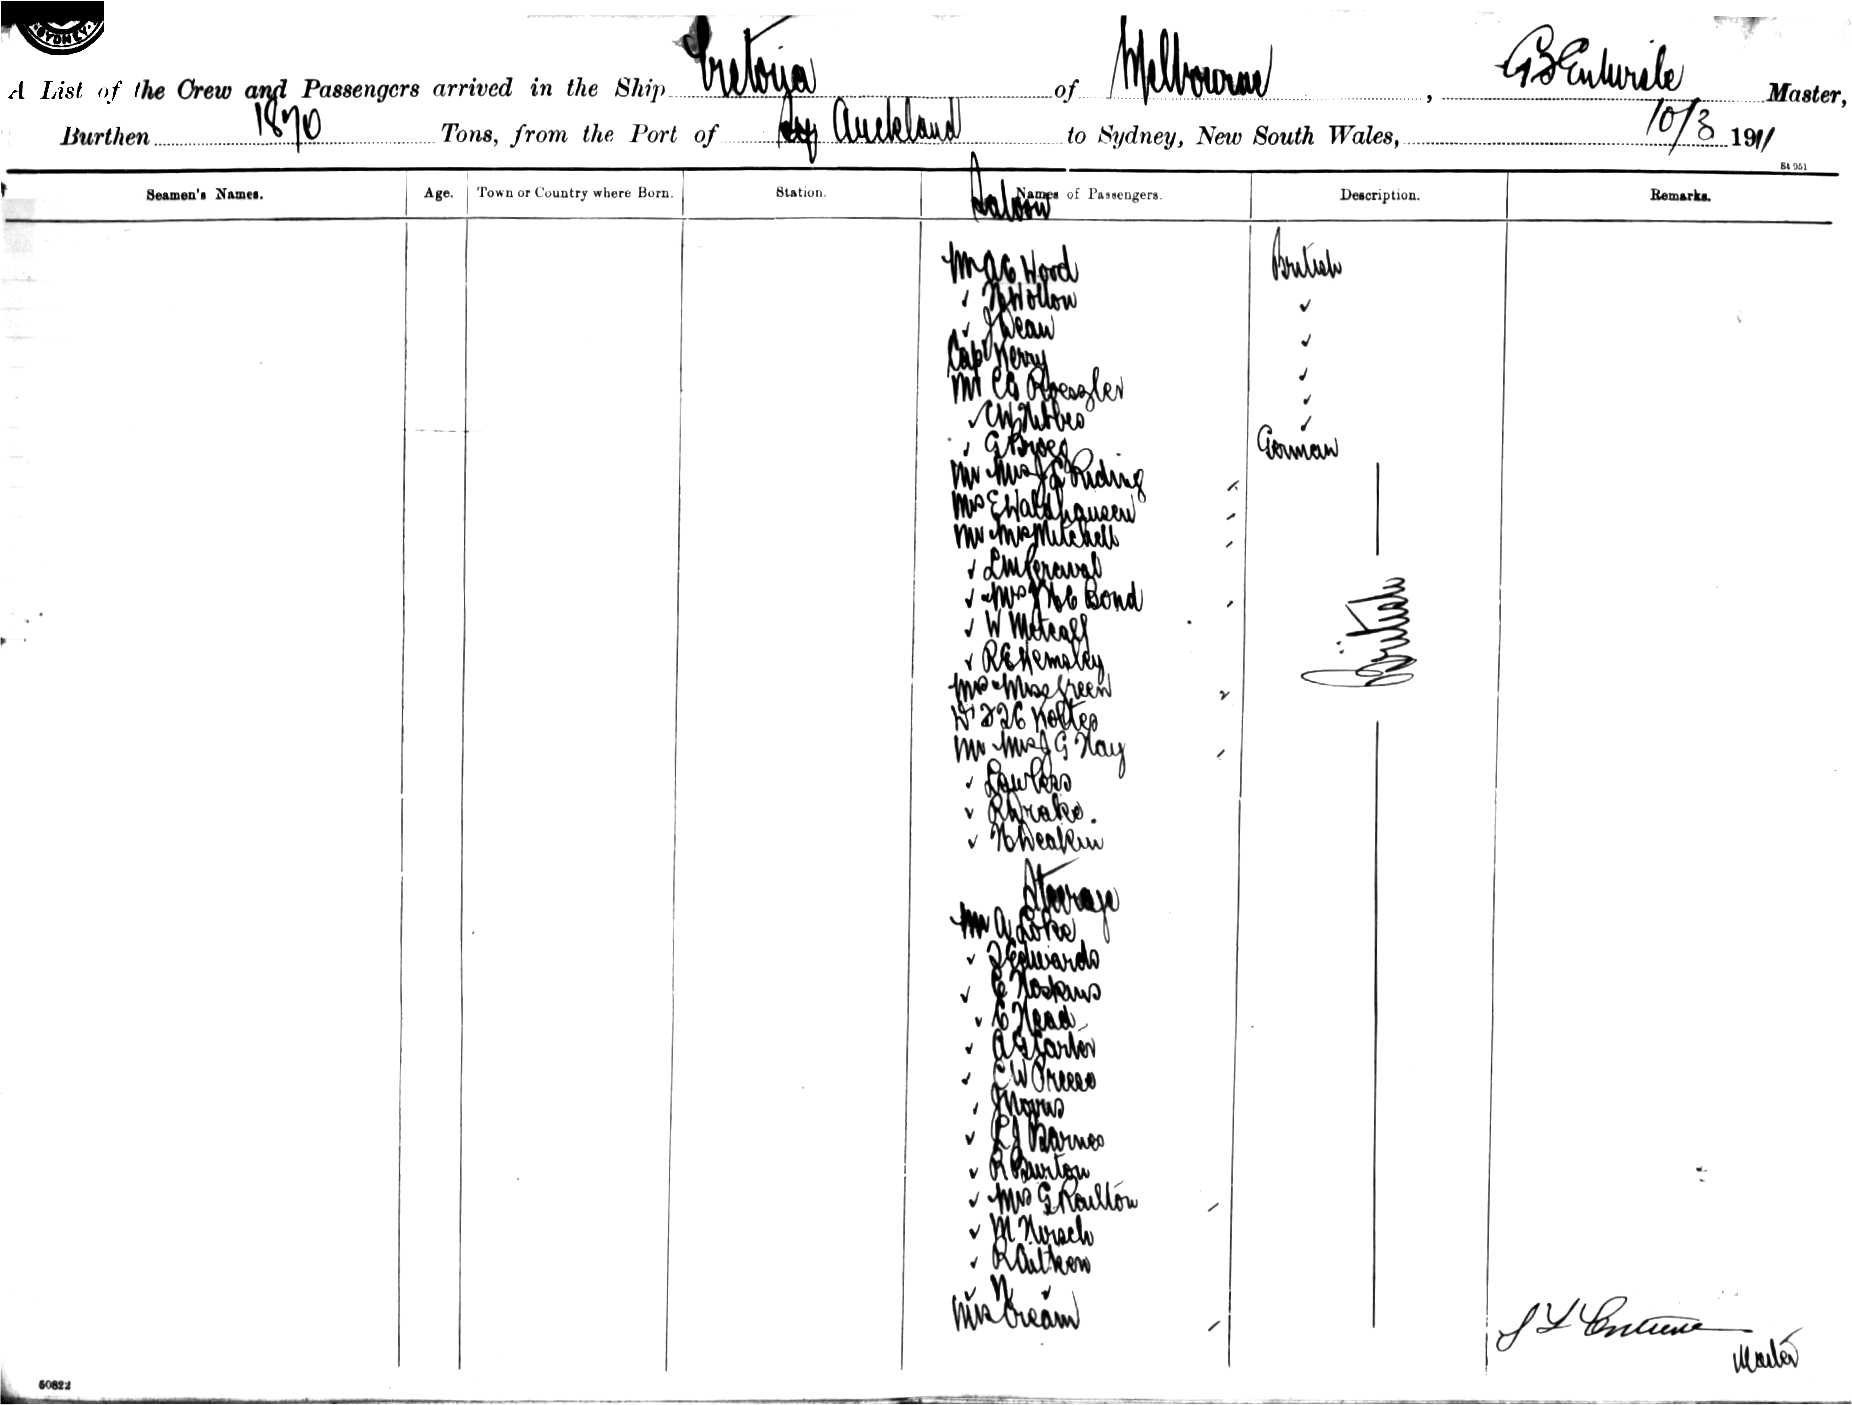 SYDNEY
A List of the Crew and Passengers arrived in the Ship Victoria of Melbourne, Master,
Burthen 1870 Tons, from the Port of Auckland to Sydney, New South Wales, 10/3 1911
54 951
Seamen's Names. Age. Town or Country where Born. Station. Names of Passengers. Description. Remarks.
Saloon
Mr A C Wood British
✓ Wollon ✓
✓ J Dean ✓
Capt Kerry ✓
Mr C B Roeszler ✓
✓ C W Hibbes ✓
✓ G Broeg German
Mr Mrs J L Riding
Mrs E Waldhausen
Mr Mrs Mitchell
✓ L M Perceval
✓ Mrs Bond
✓ W Metcalf
✓ R E Hemsley
Mrs Miss Green
British
Dr Koltes
Mr Mrs J G Hay
✓ Lawless
✓ R Drake
✓ H Deakin
Steerage
Mr A Loke
✓ Edwards
✓ E Hoskins
✓ C Head
✓ A G Carter
✓ C W Preece
✓ J Norris
✓ L J Barnes
✓ R Burton
✓ Mrs G Poulton
✓ M Hirsch
✓ R Aitken
Mrs Cream
Master
50822